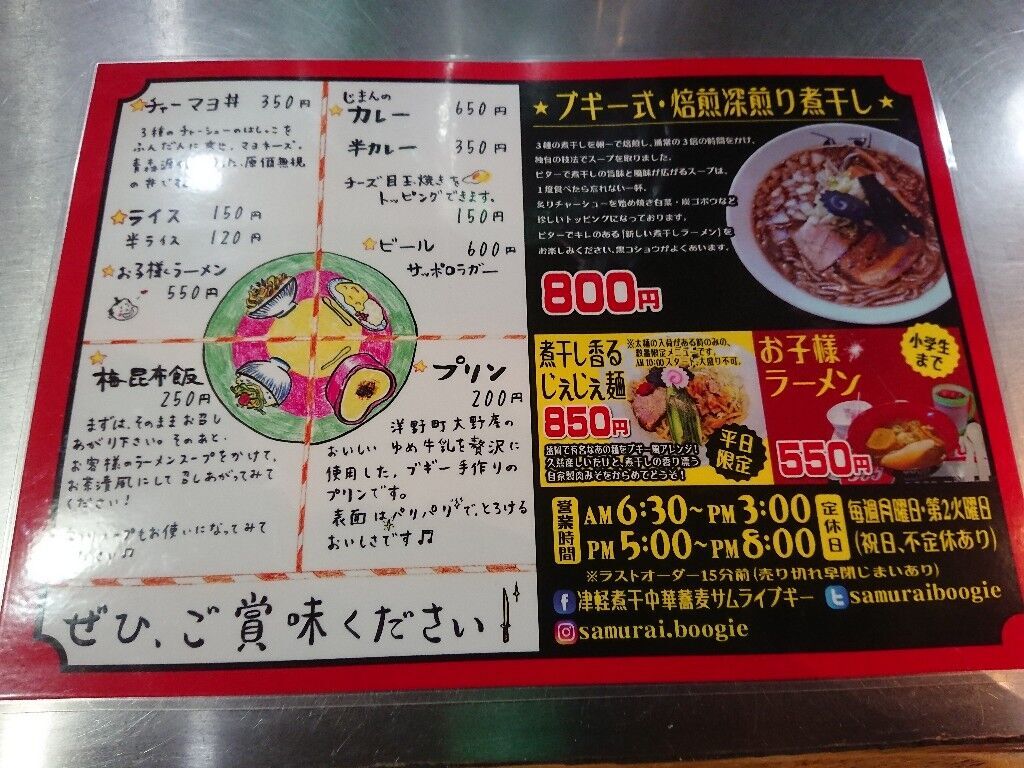 チャーマヨ丼 350円
3種のチャーシューのはしっこを
ふんだんに乗せ、マヨネーズ、
原価無視
の丼です
ライス 150円
半ライス 120円
お子様ラーメン
550円
じまんの
カレー 650円
半カレー 350円
チーズ 目玉焼きを
トッピングできます。
150円
ビール 600円
サッポロラガー
梅昆布飯
250円
まずは、そのままお召し
あがり下さい。そのあと、
お客様のラーメンスープをかけて、
お茶漬風にして召しあがってみて
ください！
もお使いになってみて
プリン
200円
洋野町大野産の
おいしい ゆめ牛乳を贅沢に
使用した。ブギー手作りの
プリンです。
表面はパリパリで、とろける
おいしさです♫
ぜひ、ご賞味ください
★ブギー式・焙煎深煎り煮干し★
3種の煮干しを朝一で焙煎し、通常の3倍の時間をかけ、
独自の技法でスープを取りました。
ビターで煮干しの旨味と風味が広がるスープは、
1度食べたら忘れない一杯。
炙りチャーシューを始め焼き白菜・炭ゴボウなど
珍しいトッピングになっております。
ビターでキレのある【新しい煮干しラーメン】を
お楽しみください、黒コショウがよくあいます。
800円
煮干し香る
じぇじぇ麺
850円
※太麺の入荷がある時のみの、
数量限定メニューです。
AM10:00スタート、大盛り不可。
平日
限定
盛岡で有名なあの麺をブギー風アレンジ！
久慈産しいたけと、煮干しの香り漂う
自家製肉みそをからめてどうぞ！
お子様
ラーメン
小学生
まで
550円
営業時間
AM6:30～PM3:00
PM5:00～PM8:00
定休日
毎週月曜日・第2火曜日
(祝日、不定休あり)
※ラストオーダー15分前(売り切れ早閉じまいあり)
津軽煮干中華蕎麦サムライブギー samuraiboogie
samurai.boogie